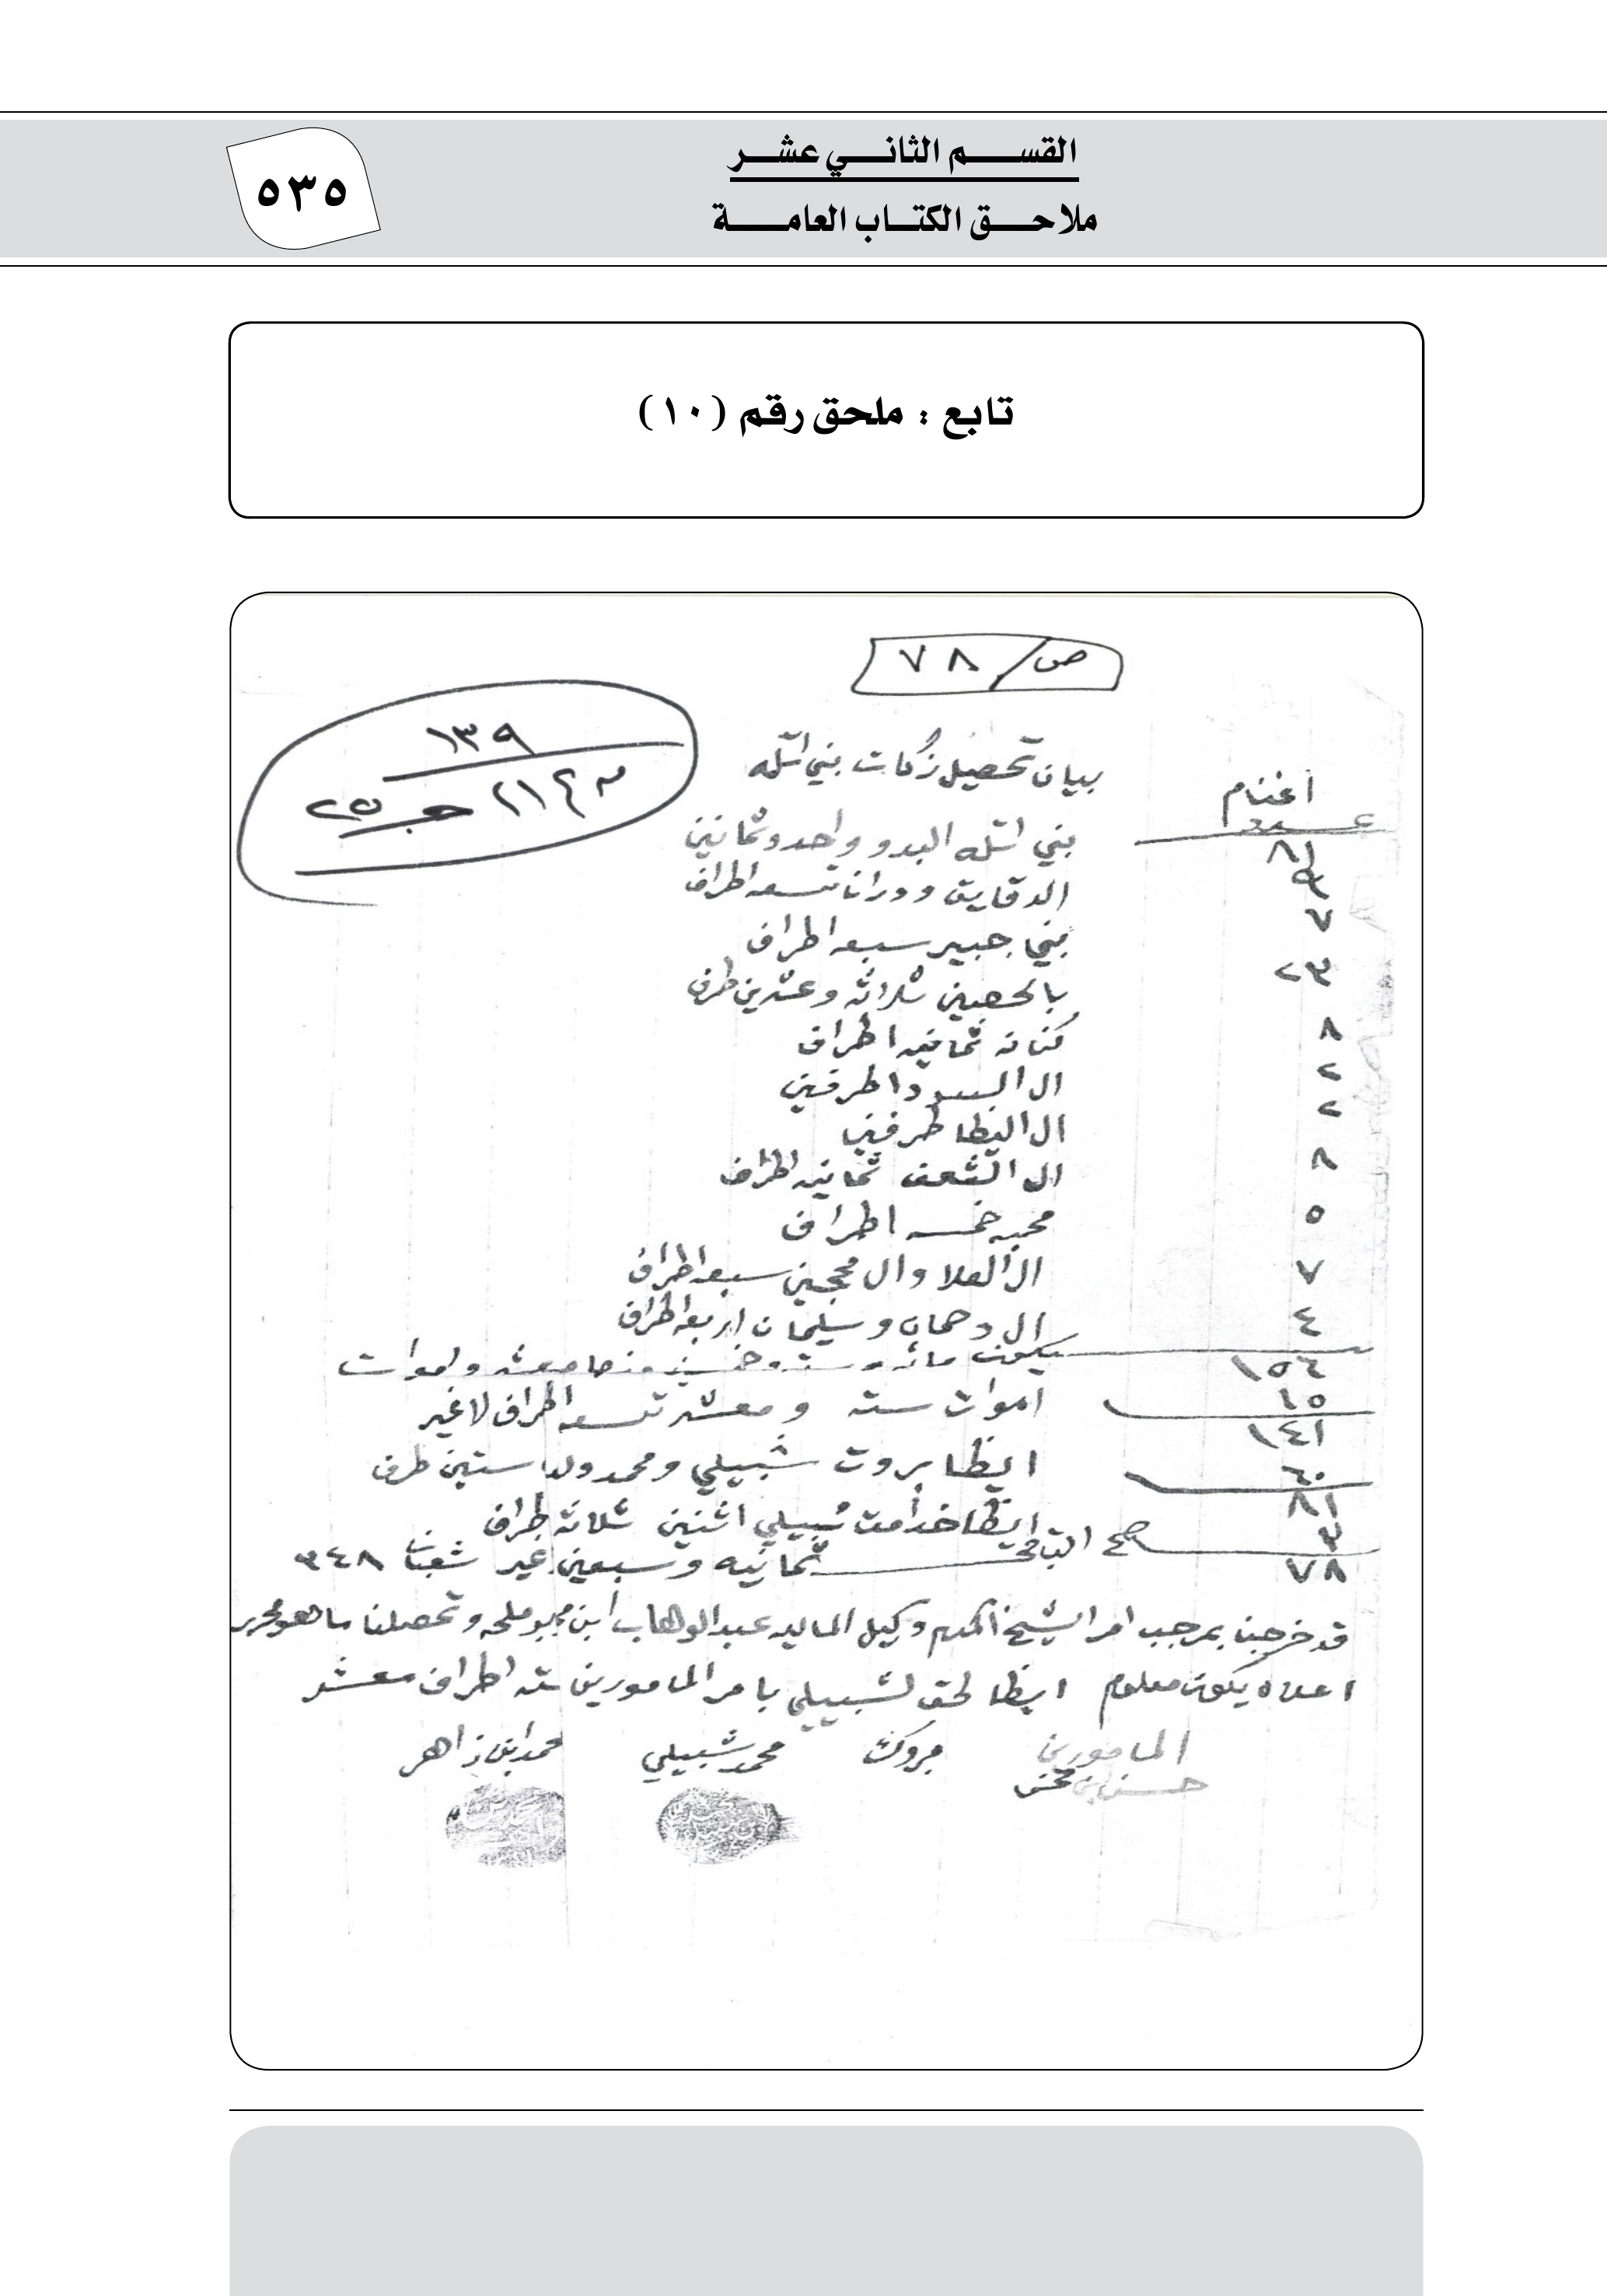 القســـــم الثانـــــي عشـــر
ملاحـــق الكتـــاب العامـــــة
٥٣٥
تابع : ملحق رقم (١٠)
ص/ ٧٨
١٣٩
٢٥
بيان تحصيل زكات بني اثله
اغنام
عدد
٨١ بني اثله البدو واحد وثمانين
٩ الدقايق وورانا تسعه اطراف
٧ بني جبير سبعه اطراف
٢٣ بالحصين ثلاثه وعشرين طرف
٨ كنانه ثمانيه اطراف
٢ ال السودا طرفين
٢ ال البظا طرفين
٨ ال الشعف ثمانيه اطراف
٥ محبه خمسه اطراف
٧ ال العلا وال محجين سبعه اطراف
٤ ال دحمان وسليمان اربعه اطراف
١٥٦ يكون مائه وسته وخمسين منها معشر واموات
١٥ اموات سته ومعشر تسعه اطراف لاغير
١٤١
٦٠ ايظا بروت شبيلي ومحمد ولد ستين طرف
٨١
٣ ايظا خدامت شبيلي اثنين ثلاثه اطراف
٧٨ صح الباقي ثمانيه وسبعين غير شعبان ٣٤٨
قد خرجنا بموجب امر الشيخ المكرم وكيل الماليه عبدالوهاب ابن ابوملحه وتحصلنا ما هو محرر
اعلاه يكون معلوم ايظا لحق لشبيلي بامر المامورين سته اطراف معشر
المامورين
حسن ابن
مبروك
محمد شبيلي
محمد ابن زاهر